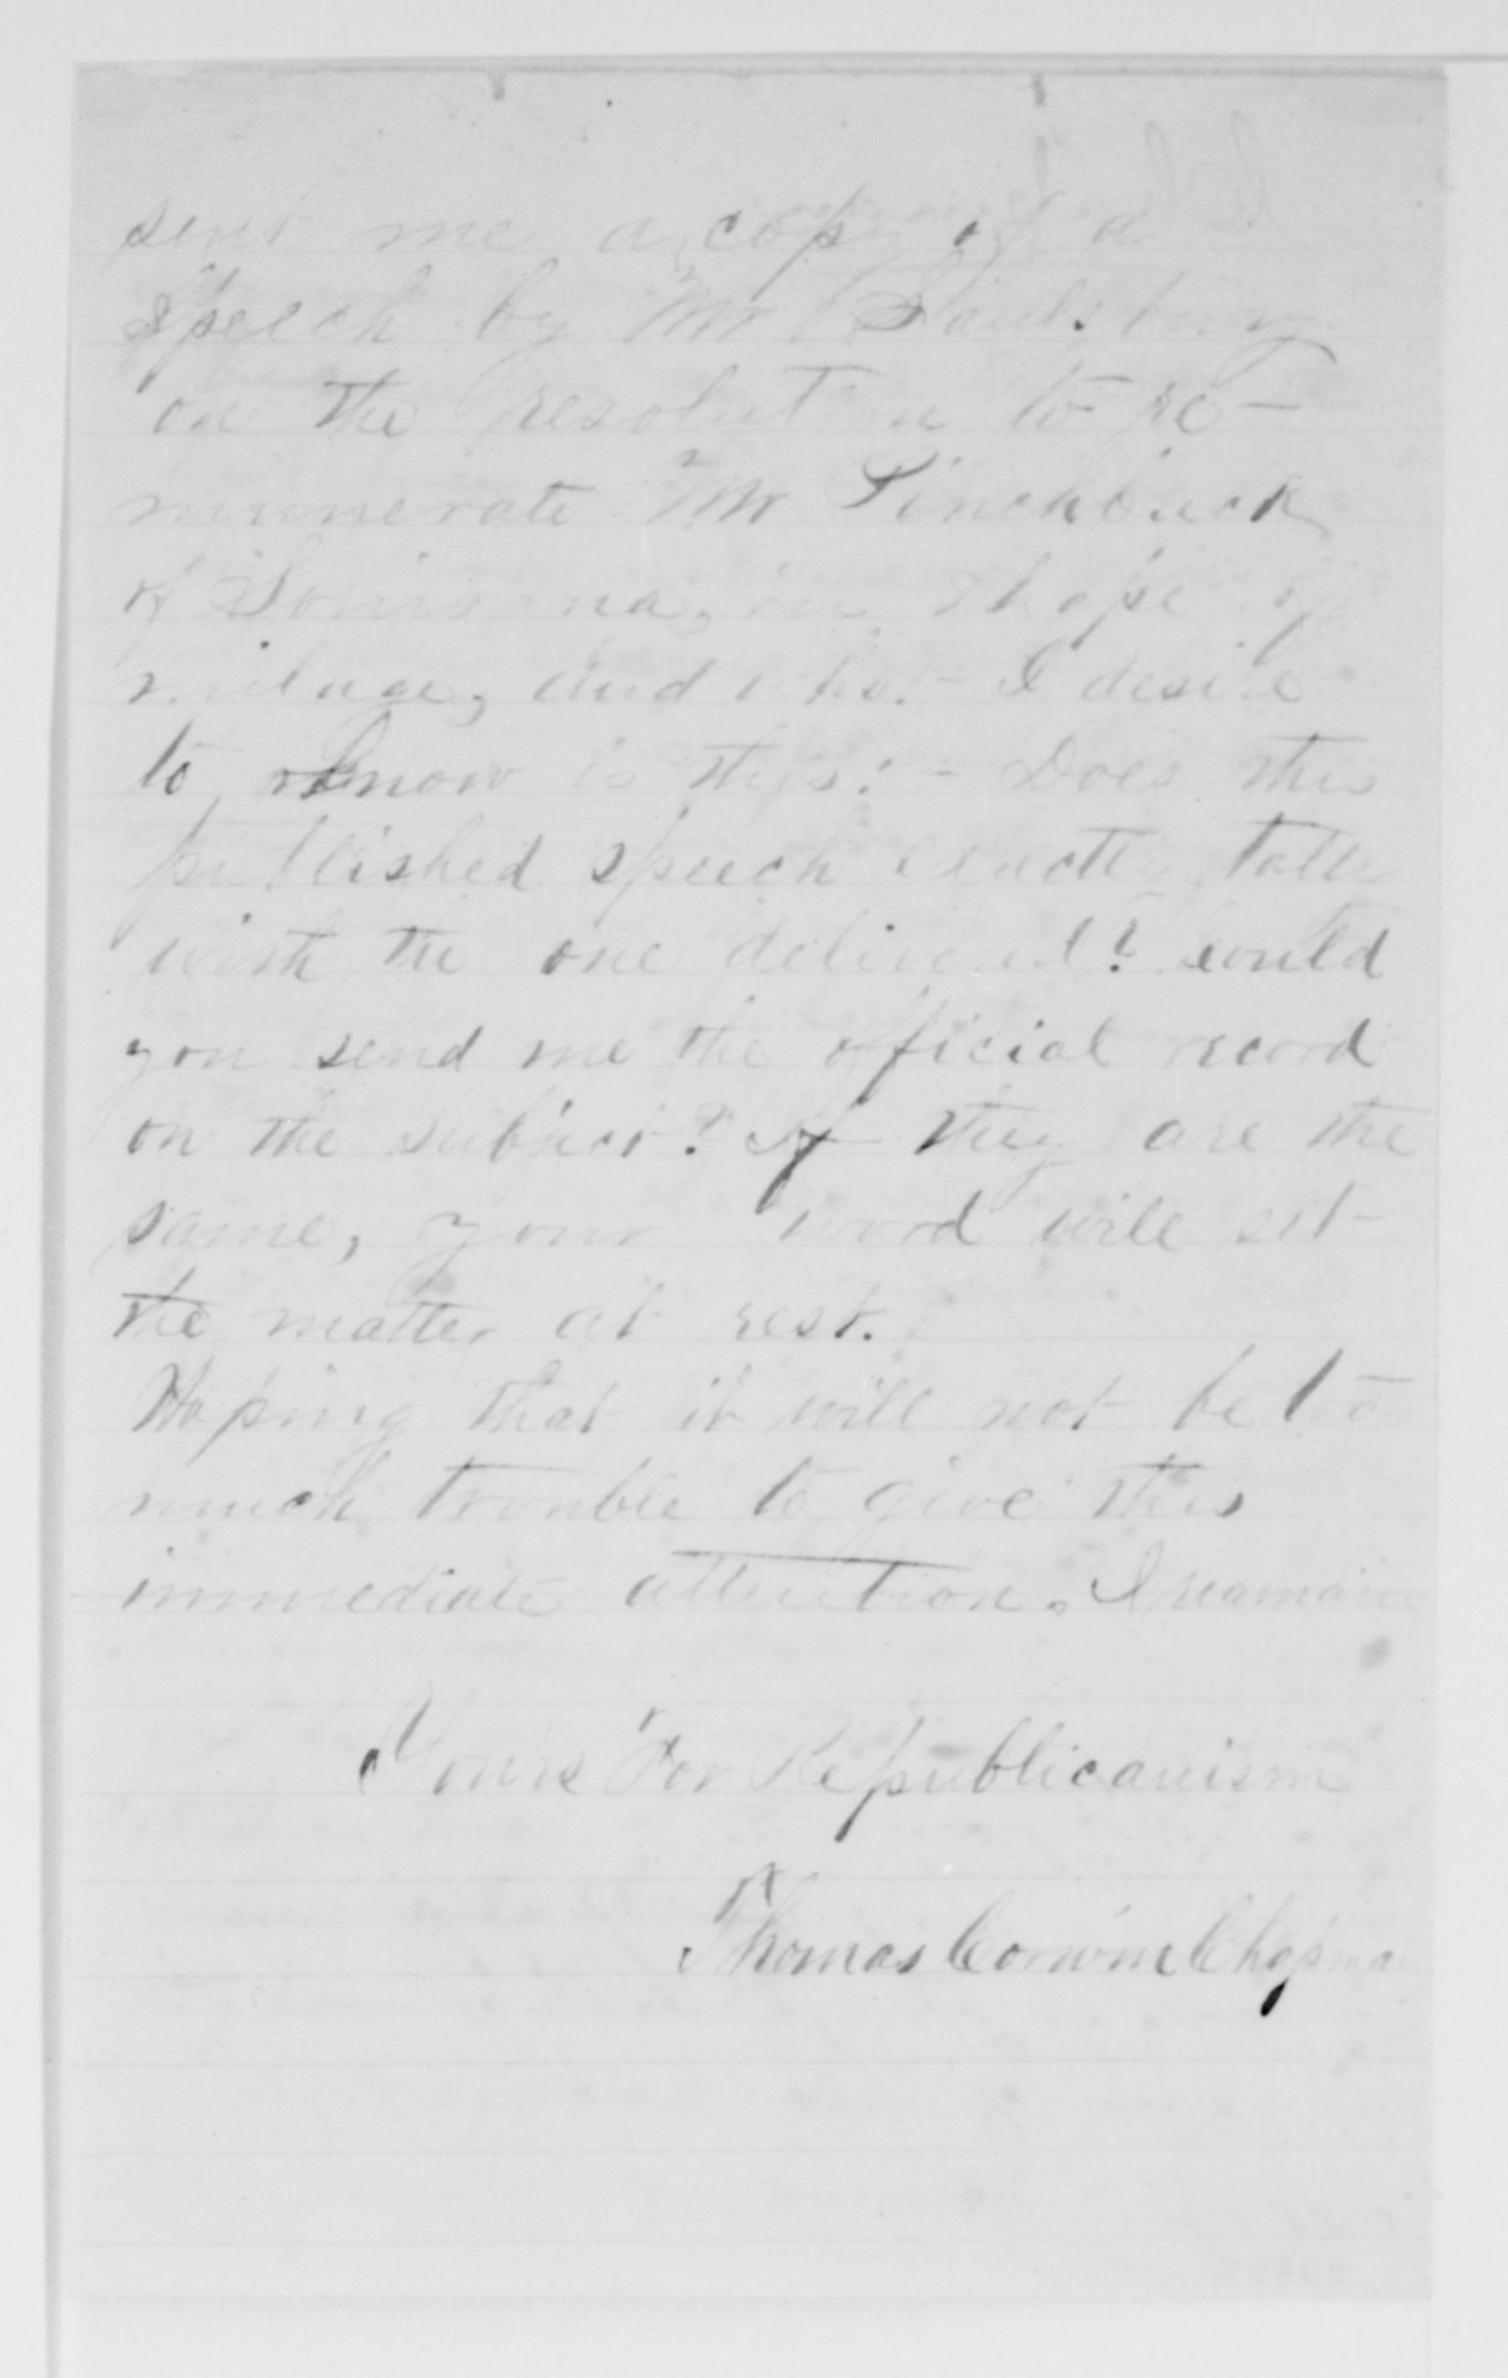 sent me a copy of a
Speech by Mr Saulsbury
on the resolution to re-
munerate Mr Pinchback
of Louisiana, in shape of
milage, and what I desire
to know is this:- Does this
published speech exactly tally
with the one delivered? could
you send me the official record
on the subject? If they are the
same, your word will set
the matter at rest.
Hoping that it will not be too
much trouble to give this
immediate attention. I reamain
Yours For Republicanism
Thomas Corwin Chapman